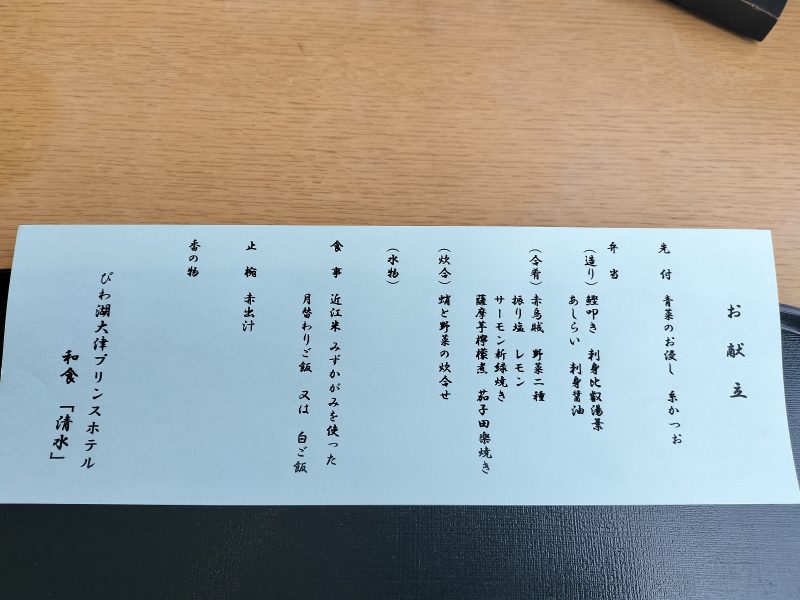 お献立
先付 青菜のお浸し 糸かつお
弁当
(造り) 鰹叩き 刺身比叡湯葉
あしらい 刺身醤油
(合肴) 赤烏賊 野菜二種
振り塩 レモン
サーモン新緑焼き
薩摩芋檸檬煮 茄子田楽焼き
(炊合) 蛸と野菜の炊合せ
(水物)
食事 近江米 みずかがみを使った
月替わりご飯 又は 白ご飯
止椀 赤出汁
香の物
びわ湖大津プリンスホテル
和食 「清水」